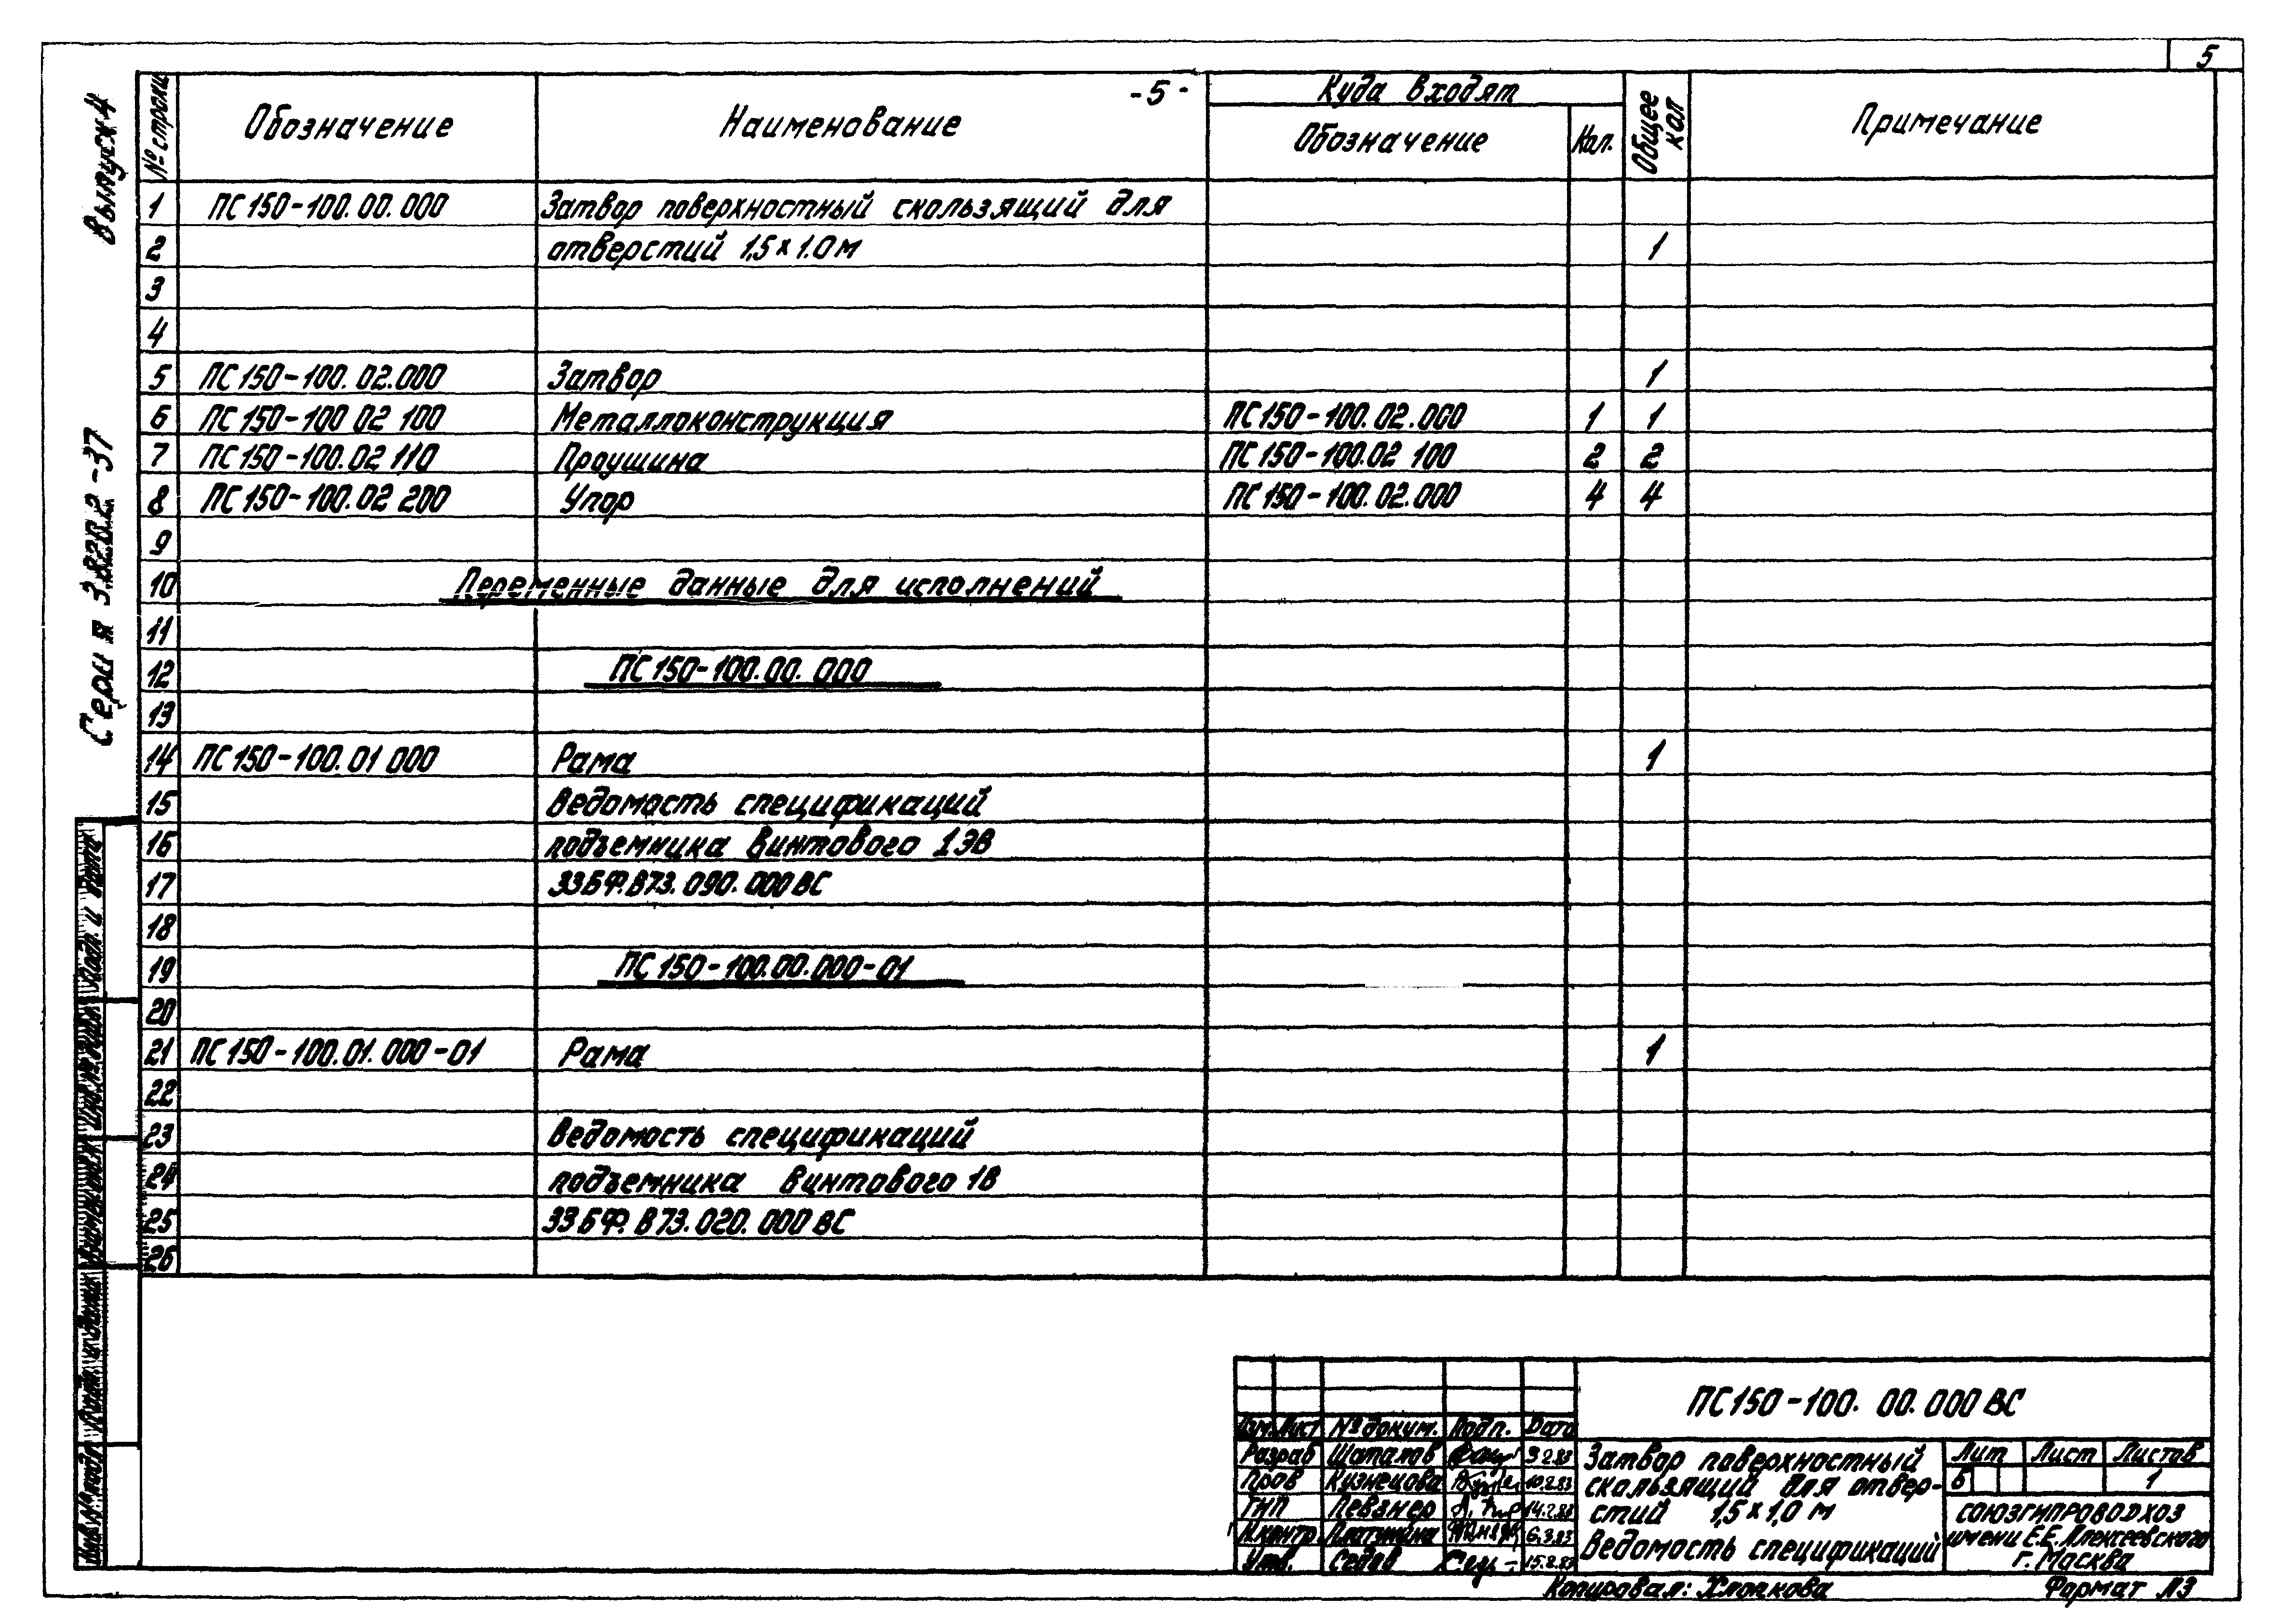 5
Выпуск 4
Серия 3.820.2-37
-5-
№ строки
Обозначение
Наименование
Куда входят
Обозначение
Кол.
Общее кол
Примечание
1 ПС150-100.00.000 Затвор поверхностный скользящий для
2 отверстий 1,5х1.0м 1
3
4
5 ПС150-100.02.000 Затвор 1
6 ПС150-100 02 100 Металлоконструкция ПС150-100.02.000 1 1
7 ПС150-100.02 110 Проушина ПС150-100.02 100 2 2
8 ПС150-100.02 200 Упор ПС150-100.02.000 4 4
9
10 Переменные данные для исполнений
11
12 ПС150-100.00.000
13
14 ПС150-100.01 000 Рама 1
15 Ведомость спецификаций
16 подъемника винтового 1ЭВ
17 33БФ.В73.090.000ВС
18
19 ПС150-100.00.000-01
20
21 ПС150-100.01.000-01 Рама 1
22
23 Ведомость спецификаций
24 подъемника винтового 1В
25 33БФ.В73.020.000ВС
26
ПС150-100.00.000ВС
Изм. Лист № докум. Подп. Дата
Разраб Шаталов 9.2.83
Пров Кузнецова 10.2.83
ГИП Певзнер 14.2.83
Н.контр. Платунина 6.3.83
Утв. Седов 15.2.83
Затвор поверхностный
скользящий для отвер-
стий 1,5х1,0 м
Ведомость спецификаций
Лит Лист Листов
Б 1
СОЮЗГИПРОВОДХОЗ
имени Е.Е.Алексеевского
г. Москва
Копировал: Хлопкова
Формат А3
Подп. и дата
Взам. инв.№
Подп. и дата
Инв.№ подл